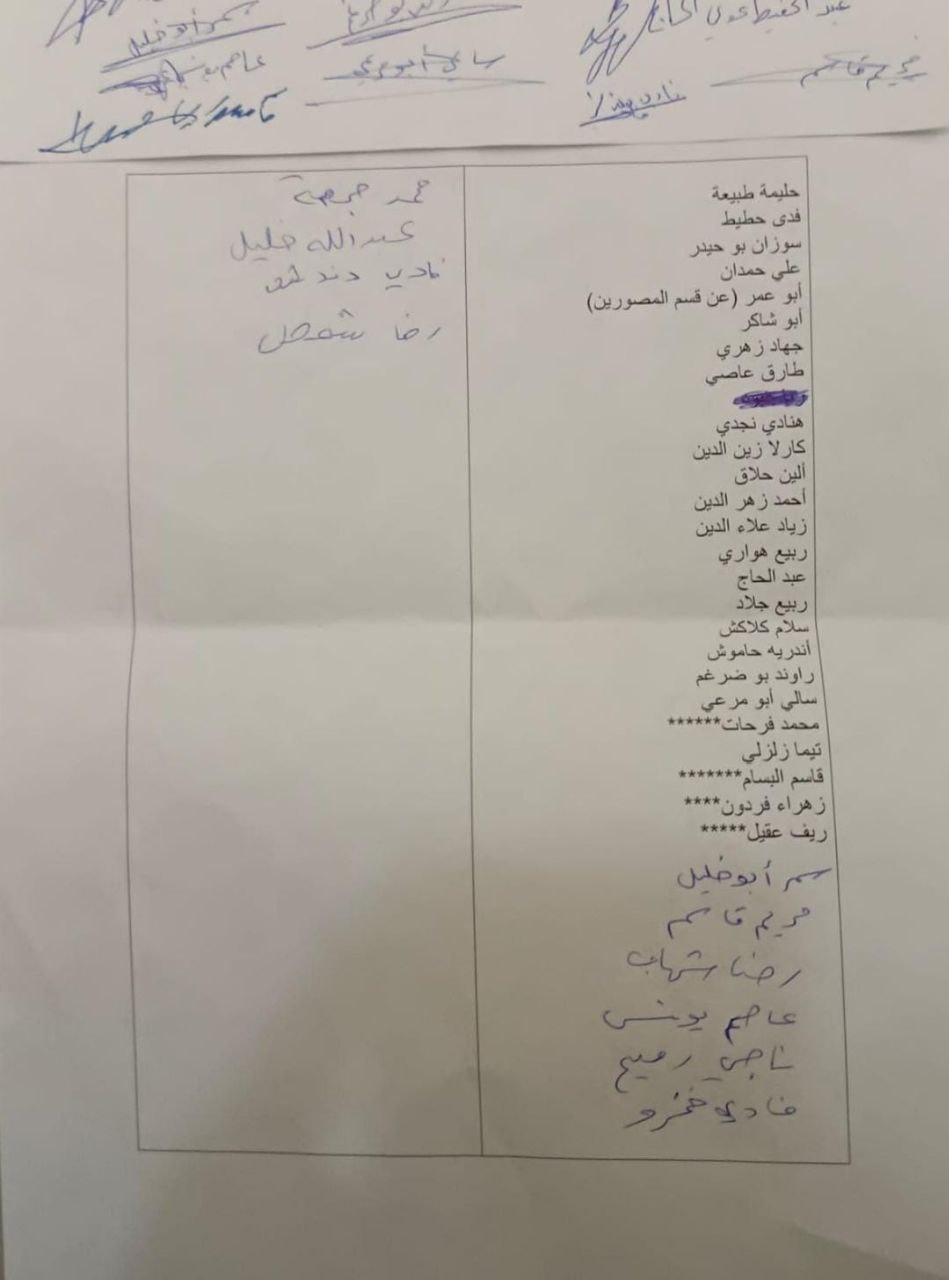 عبد الحفيظ
سمر أبو خليل
سالي أبو مرعي
مريم قاسم
عاصم
حليمة طبيعة
فدى حطيط
سوزان بو حيدر
علي حمدان
أبو عمر (عن قسم المصورين)
أبو شاكر
جهاد زهري
طارق عاصي
هنادي نجدي
كارلا زين الدين
ألين حلاق
أحمد زهر الدين
زياد علاء الدين
ربيع هواري
عبد الحاج
ربيع جلاد
سلام كلاكش
أندريه حاموش
راوند بو ضرغم
سالي أبو مرعي
محمد فرحات******
تيما زلزلي
قاسم البسام*******
زهراء فردون****
ريف عقيل*****
سمر أبو خليل
مريم قاسم
رضا شهاب
عاصم يونس
ناجي رميح
فادي
محمد جمعة
عبد الله خليل
فادي
رضا